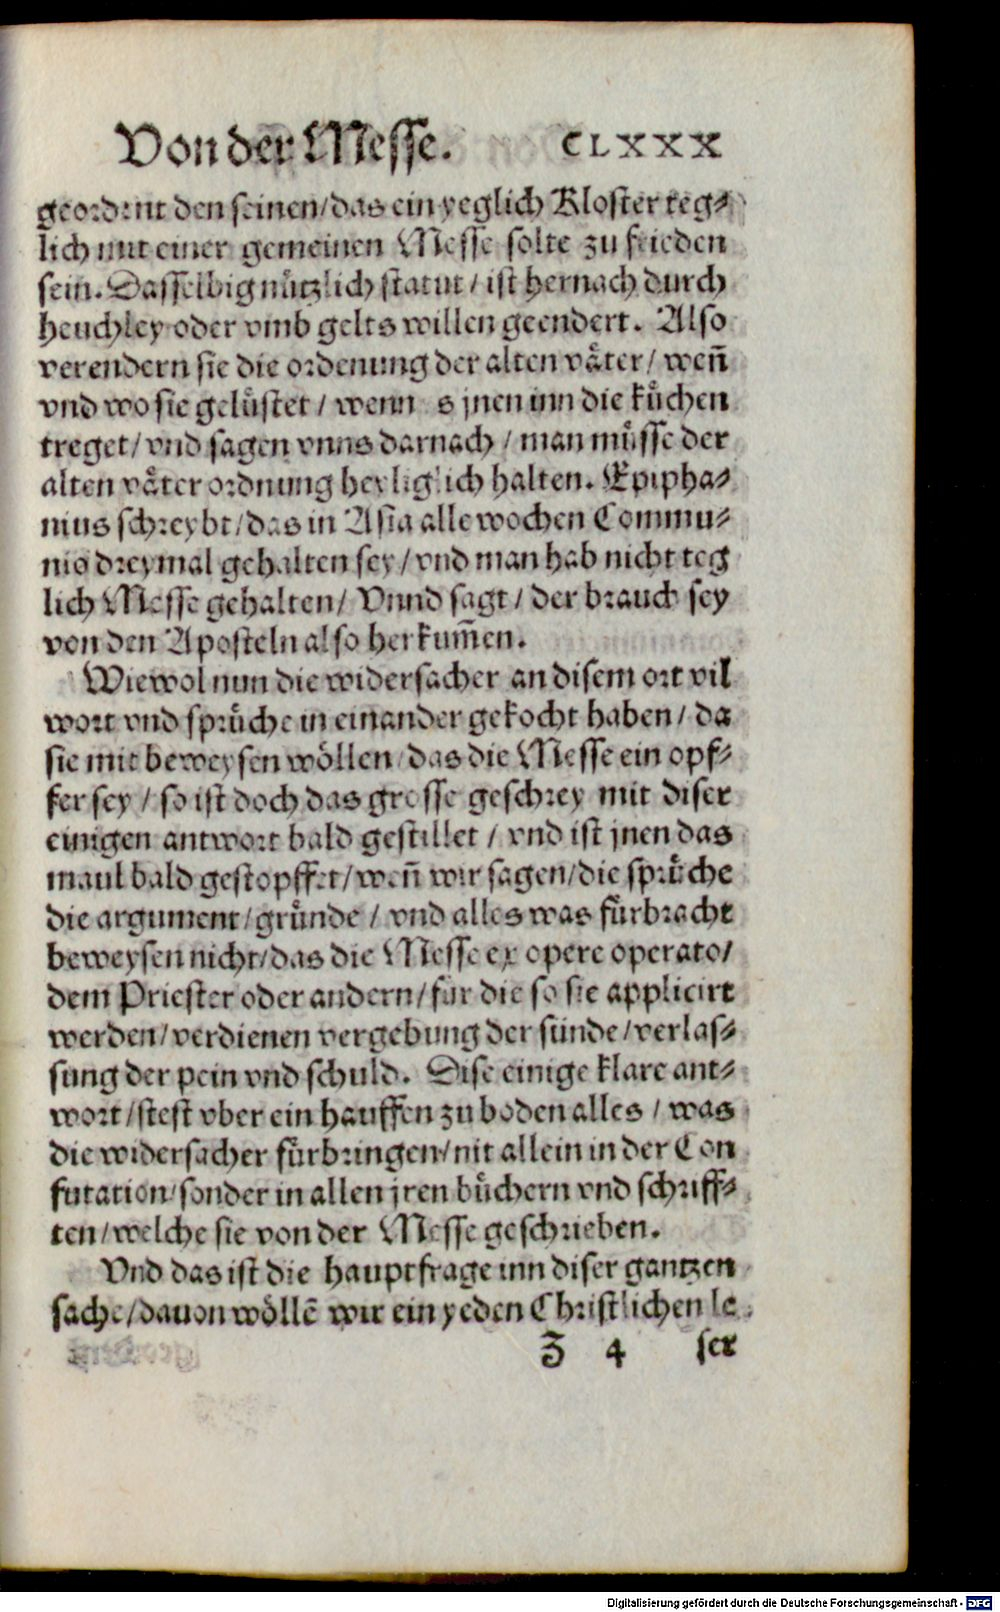 Von der Messe. CLXXX
geordent den seinen/das ein yeglich Kloster teg⸗
lich mit einer gemeinen Messe solte zu frieden
sein. Dasselbig nützlich statut/ist hernach durch
heuchley oder vmb gelts willen geendert. Also
verendern sie die ordenung der alten väter/weñ
vnd wo sie gelüstet/wenn s jnen inn die küchen
treget/vnd sagen vnns darnach/man müsse der
alten väter ordnung heyliglich halten. Epipha⸗
nius schreybt/das in Asia alle wochen Commu⸗
nio dreymal gehalten sey/vnd man hab nicht teg
lich Messe gehalten/Vnnd sagt/der brauch sey
von den Aposteln also herkum̃en.
Wiewol nun die widersacher an disem ort vil
wort vnd sprüche in einander gekocht haben/da
sie mit beweysen wöllen/das die Messe ein opf⸗
fer sey/so ist doch das grosse geschrey mit diser
einigen antwort bald gestillet/vnd ist jnen das
maul bald gestopffet/weñ wir sagen/die sprüche
die argument/gründe/vnd alles was fürbracht
beweysen nicht/das die Messe ex opere operato/
dem Priester oder andern/für die so sie applicirt
werden/verdienen vergebung der sünde/verlas⸗
sung der pein vnd schuld. Dise einige klare ant⸗
wort/stest vber ein hauffen zu boden alles/was
die widersacher fürbringen/nit allein in der Con
futation/sonder in allen jren büchern vnd schriff⸗
ten/welche sie von der Messe geschrieben.
Vnd das ist die hauptfrage inn diser gantzen
sache/dauon wöllẽ wir ein yeden Christlichen le
Z 4 ser
Digitalisierung gefördert durch die Deutsche Forschungsgemeinschaft - DFG